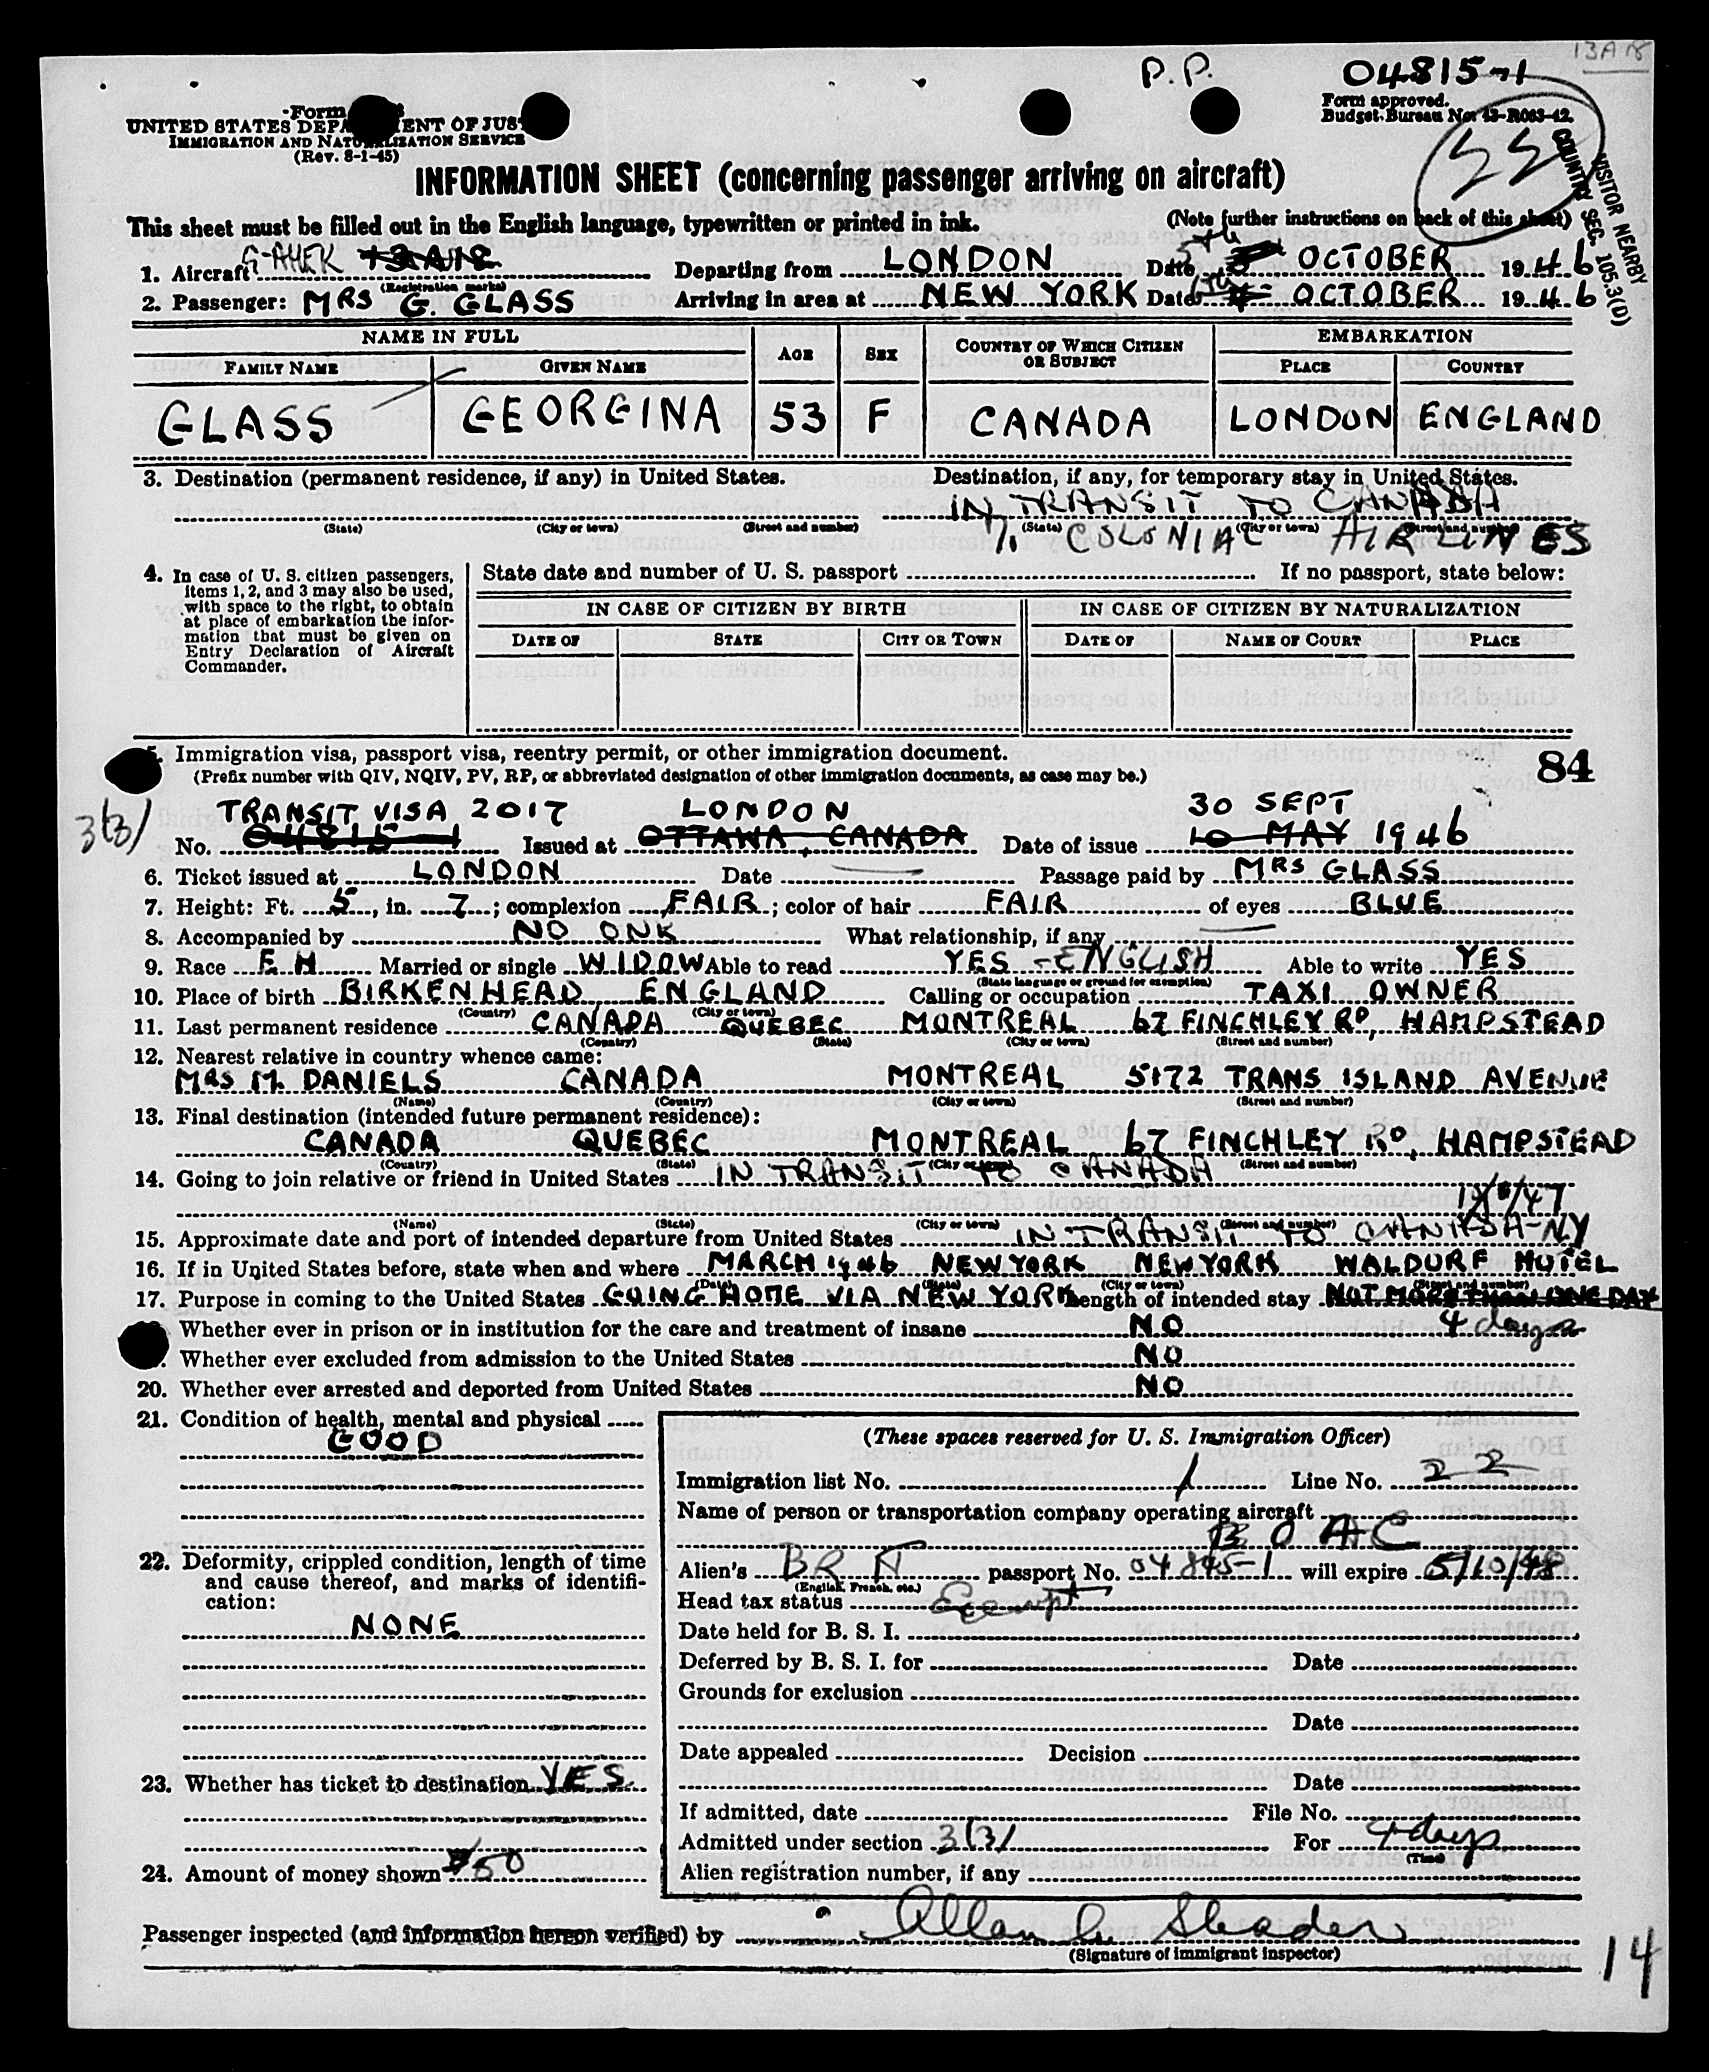 13A
P.P. 04815-1
Form
UNITED STATES DEPA ENT OF JUS
IMMIGRATION AND NATURALIZATION SERVICE
(Rev. 8-1-45)
Form approved.
Budget Bureau No. 43-R063-42.
VISITOR NEARBY
COUNTRY SEC. 105.3(D)
INFORMATION SHEET (concerning passenger arriving on aircraft)
This sheet must be filled out in the English language, typewritten or printed in ink. (Note further instructions on back of this sheet)
1. Aircraft G-AHEK Departing from LONDON Date 5th OCTOBER 1946
(Registration marks)
2. Passenger: MRS G. GLASS Arriving in area at NEW YORK Date OCTOBER 1946
NAME IN FULL AGE SEX COUNTRY OF WHICH CITIZEN OR SUBJECT EMBARKATION
FAMILY NAME GIVEN NAME PLACE COUNTRY
GLASS GEORGINA 53 F CANADA LONDON ENGLAND
3. Destination (permanent residence, if any) in United States. Destination, if any, for temporary stay in United States.
IN TRANSIT TO CANADA
(State) (City or town) (Street and number) (State) (City or town) (Street and number)
% COLONIAL AIRLINES
4. In case of U. S. citizen passengers, items 1, 2, and 3 may also be used, with space to the right, to obtain at place of embarkation the information that must be given on Entry Declaration of Aircraft Commander.
State date and number of U. S. passport If no passport, state below:
IN CASE OF CITIZEN BY BIRTH IN CASE OF CITIZEN BY NATURALIZATION
DATE OF STATE CITY OR TOWN DATE OF NAME OF COURT PLACE
5. Immigration visa, passport visa, reentry permit, or other immigration document. 84
(Prefix number with QIV, NQIV, PV, RP, or abbreviated designation of other immigration documents, as case may be.)
3(3) TRANSIT VISA 2017 LONDON 30 SEPT
No. 04815-1 Issued at OTTAWA, CANADA Date of issue 10 MAY 1946
6. Ticket issued at LONDON Date Passage paid by MRS GLASS
7. Height: Ft. 5, in. 7; complexion FAIR; color of hair FAIR of eyes BLUE
8. Accompanied by NO ONE What relationship, if any
9. Race EH Married or single WIDOW Able to read YES - ENGLISH Able to write YES
(State language or ground for exemption)
10. Place of birth BIRKENHEAD ENGLAND Calling or occupation TAXI OWNER
(Country) (City or town)
11. Last permanent residence CANADA QUEBEC MONTREAL 67 FINCHLEY RD, HAMPSTEAD
(Country) (State) (City or town) (Street and number)
12. Nearest relative in country whence came:
MRS M. DANIELS CANADA MONTREAL 5172 TRANS ISLAND AVENUE
(Name) (Country) (City or town) (Street and number)
13. Final destination (intended future permanent residence):
CANADA QUEBEC MONTREAL 67 FINCHLEY RD, HAMPSTEAD
(Country) (State) (City or town) (Street and number)
14. Going to join relative or friend in United States IN TRANSIT TO CANADA
(Name) (State) (City or town) (Street and number)
15. Approximate date and port of intended departure from United States IN TRANSIT TO CANADA-NY
16. If in United States before, state when and where MARCH 1946 NEW YORK NEW YORK WALDORF HOTEL
(Date) (State) (City or town) (Street and number)
17. Purpose in coming to the United States GOING HOME VIA NEW YORK Length of intended stay NOT MORE THAN ONE DAY
Whether ever in prison or in institution for the care and treatment of insane NO 4 days
Whether ever excluded from admission to the United States NO
20. Whether ever arrested and deported from United States NO
21. Condition of health, mental and physical
GOOD
22. Deformity, crippled condition, length of time and cause thereof, and marks of identification:
NONE
23. Whether has ticket to destination YES
24. Amount of money shown 50
(These spaces reserved for U. S. Immigration Officer)
Immigration list No. 1 Line No. 22
Name of person or transportation company operating aircraft
BOAC
Alien's BR N passport No. 04845-1 will expire 5/10/48
(English, French, etc.)
Head tax status Exempt
Date held for B. S. I.
Deferred by B. S. I. for Date
Grounds for exclusion
Date
Date appealed Decision
Date
If admitted, date File No.
Admitted under section 3(3) For 4 days
(Time)
Alien registration number, if any
Passenger inspected (and information hereon verified) by
(Signature of immigrant inspector)
14